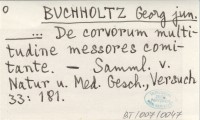 0
BUCHHOLTZ Georg jun.
__ ... De corvorum multi-
tudine messores comi-
tante. – Samml. v.
Natur u. Med. Gesch., Versuch
33: 181.
BT/007/0047